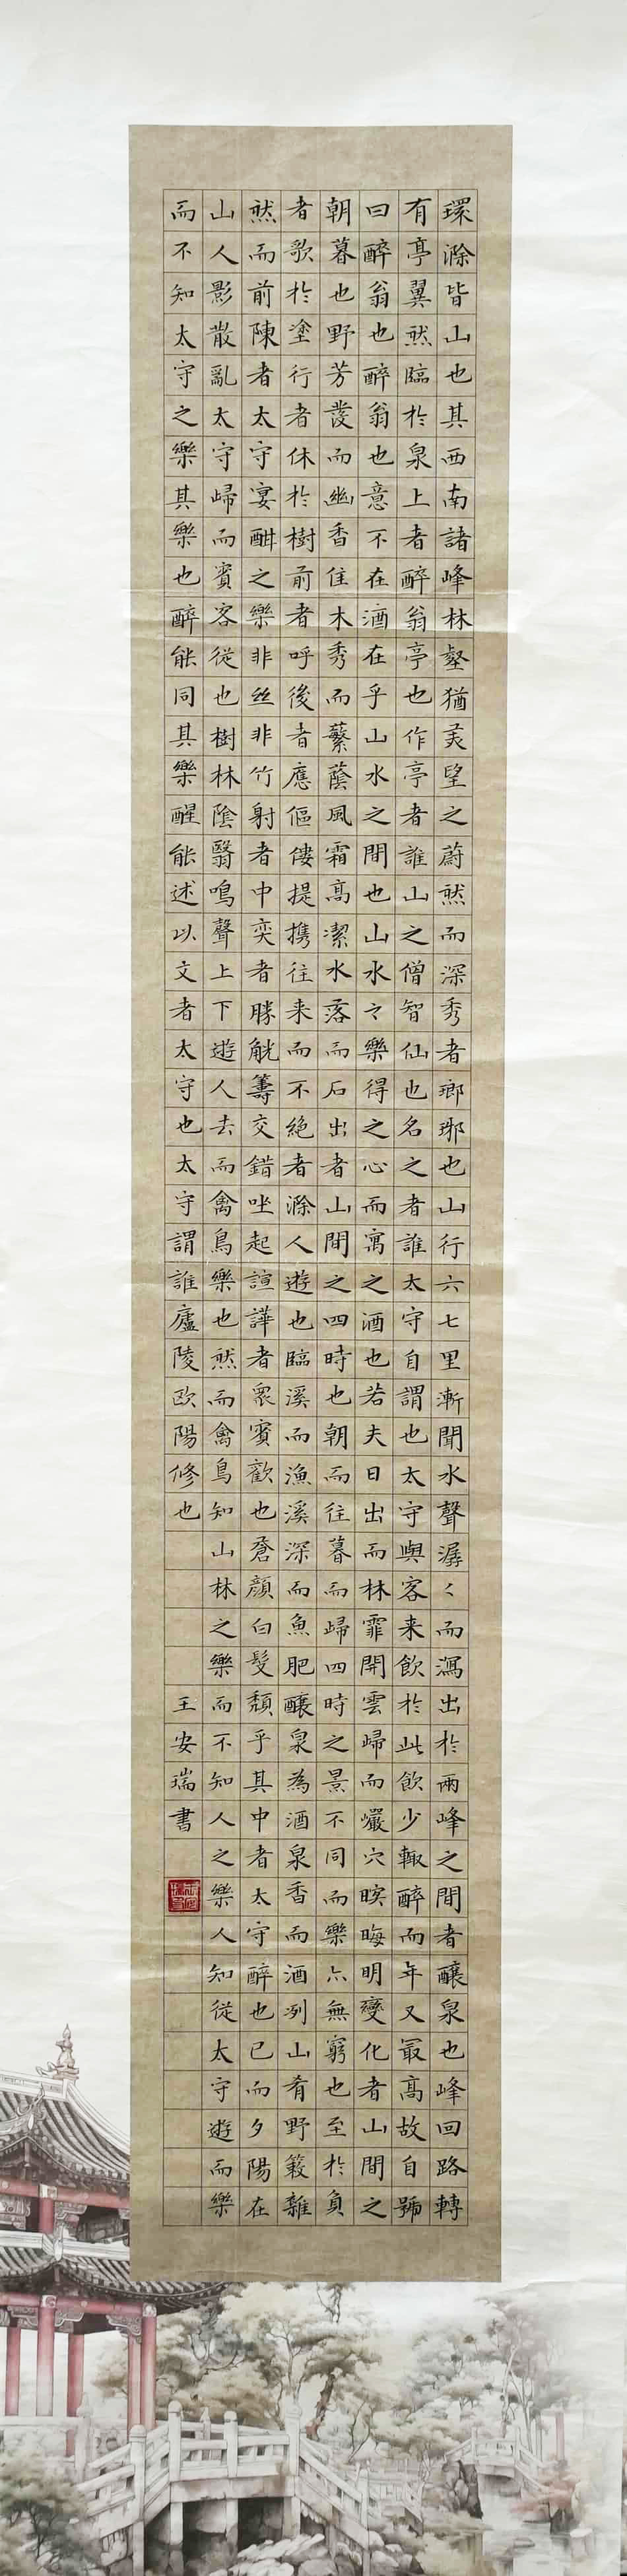 環滁皆山也其西南諸峰林壑猶美望之蔚然而深秀者瑯琊也山行六七里漸聞水聲潺々而瀉出於兩峰之間者釀泉也峰回路轉
有亭翼然臨於泉上者醉翁亭也作亭者誰山之僧智仙也名之者誰太守自謂也太守與客来飲於此飲少輒醉而年又最高故自號
曰醉翁也醉翁也意不在酒在乎山水之間也山水々樂得之心而寓之酒也若夫日出而林霏開雲歸而巖穴暝晦明變化者山間之
朝暮也野芳發而幽香佳木秀而蘩蔭風霜高潔水落而石出者山間之四時也朝而往暮而歸四時之景不同而樂亦無窮也至於負
者歌於塗行者休於樹前者呼後者應傴僂提携往来而不絕者滁人遊也臨溪而漁溪深而魚肥釀泉為酒泉香而酒洌山肴野蔌雜
然而前陳者太守宴酣之樂非丝非竹射者中奕者勝觥籌交錯坐起諠譁者衆賓歡也蒼顏白髮頹乎其中者太守醉也已而夕陽在
山人影散亂太守歸而賓客從也樹林陰翳鳴聲上下遊人去而禽鳥樂也然而禽鳥知山林之樂而不知人之樂人知從太守遊而樂
而不知太守之樂其樂也醉能同其樂醒能述以文者太守也太守謂誰廬陵欧陽修也
王安瑞書